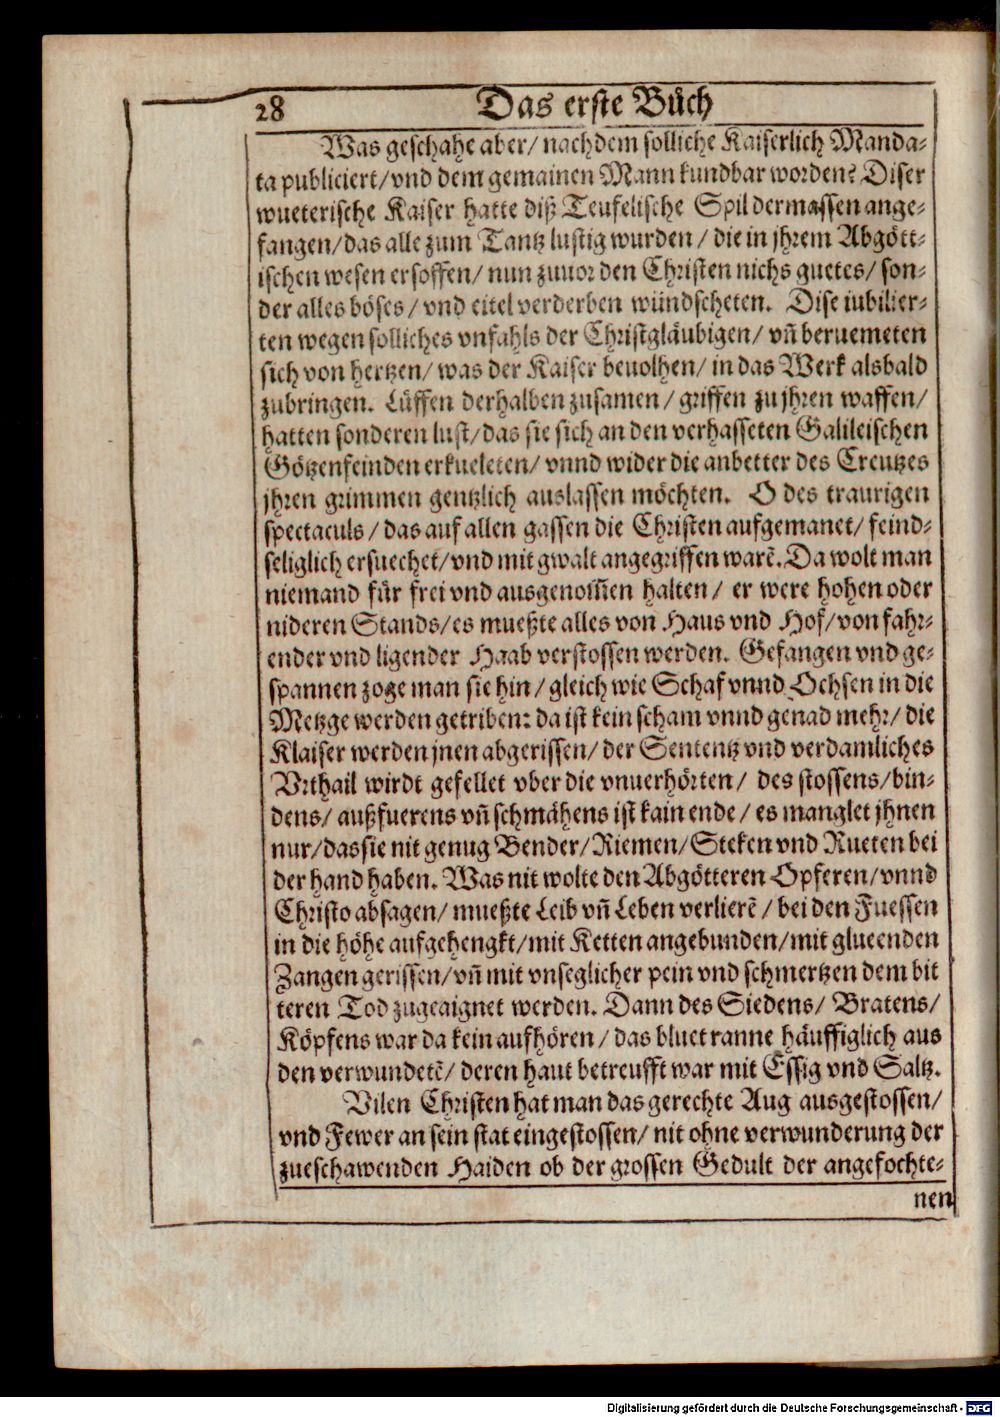 28 Das erste Bůch
Was geschahe aber/ nachdem solliche Kaiserlich Manda⸗
ta publiciert/ vnd dem gemainen Mann kundbar worden? Diser
wueterische Kaiser hatte diß Teufelische Spil dermassen ange⸗
fangen/ das alle zum Tantz lustig wurden/ die in jhrem Abgött⸗
ischen wesen ersoffen/ nun zuuor den Christen nichs guetes/ son⸗
der alles böses/ vnd eitel verderben wündscheten. Dise iubilier⸗
ten wegen solliches vnfahls der Christgläubigen/ vñ beruemeten
sich von hertzen/ was der Kaiser beuolhen/ in das Werk alsbald
zubringen. Lüffen derhalben zusamen/ griffen zu jhren waffen/
hatten sonderen lust/ das sie sich an den verhasseten Galileischen
Götzenfeinden erkueleten/ vnnd wider die anbetter des Creutzes
jhren grimmen gentzlich auslassen möchten. O des traurigen
spectaculs/ das auf allen gassen die Christen aufgemanet/ feind⸗
seliglich ersuechet/ vnd mit gwalt angegriffen warē. Da wolt man
niemand für frei vnd ausgenom̃en halten/ er were hohen oder
nideren Stands/ es mueßte alles von Haus vnd Hof/ von fahr⸗
ender vnd ligender Haab verstossen werden. Gefangen vnd ge⸗
spannen zoge man sie hin/ gleich wie Schaf vnnd Ochsen in die
Metzge werden getriben: da ist kein scham vnnd genad mehr/ die
Klaiser werden jnen abgerissen/ der Sententz vnd verdamliches
Vrthail wirdt gefellet vber die vnuerhörten/ des stossens/ bin⸗
dens/ außfuerens vñ schmähens ist kain ende/ es manglet jhnen
nur/ das sie nit genug Bender/ Riemen/ Steken vnd Rueten bei
der hand haben. Was nit wolte den Abgötteren Opferen/ vnnd
Christo absagen/ mueßte Leib vñ Leben verlierē/ bei den Fuessen
in die höhe aufgehengkt/ mit Ketten angebunden/ mit glueenden
Zangen gerissen/ vñ mit vnseglicher pein vnd schmertzen dem bit
teren Tod zugeaignet werden. Dann des Siedens/ Bratens/
Köpfens war da kein aufhören/ das bluet ranne häuffiglich aus
den verwundetē/ deren haut betreufft war mit Essig vnd Saltz.
Vilen Christen hat man das gerechte Aug ausgestossen/
vnd Fewer an sein stat eingestossen/ nit ohne verwunderung der
zueschawenden Haiden ob der grossen Gedult der angefochte⸗
nen
Digitalisierung gefördert durch die Deutsche Forschungsgemeinschaft - DFG